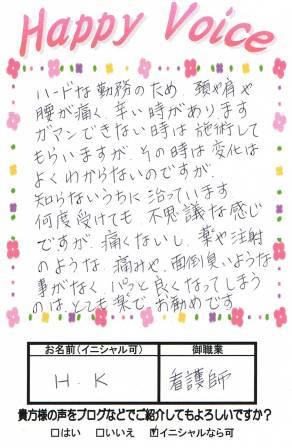 Happy Voice
ハードな勤務のため、頚や肩や
腰が痛く、辛い時があります
ガマンできない時は施術して
もらいますが、その時は変化は
よくわからないのですが、
知らないうちに治っています
何度受けても、不思議な感じ
ですが、痛くないし、薬や注射
のような、痛みや、面倒臭いような
事がなく、パッと良くなってしまう
のは、とても楽で、お勧めです
お名前(イニシャル可)
御職業
H.K
看護師
貴方様の声をブログなどでご紹介してもよろしいですか?
□はい □いいえ ☑イニシャルなら可